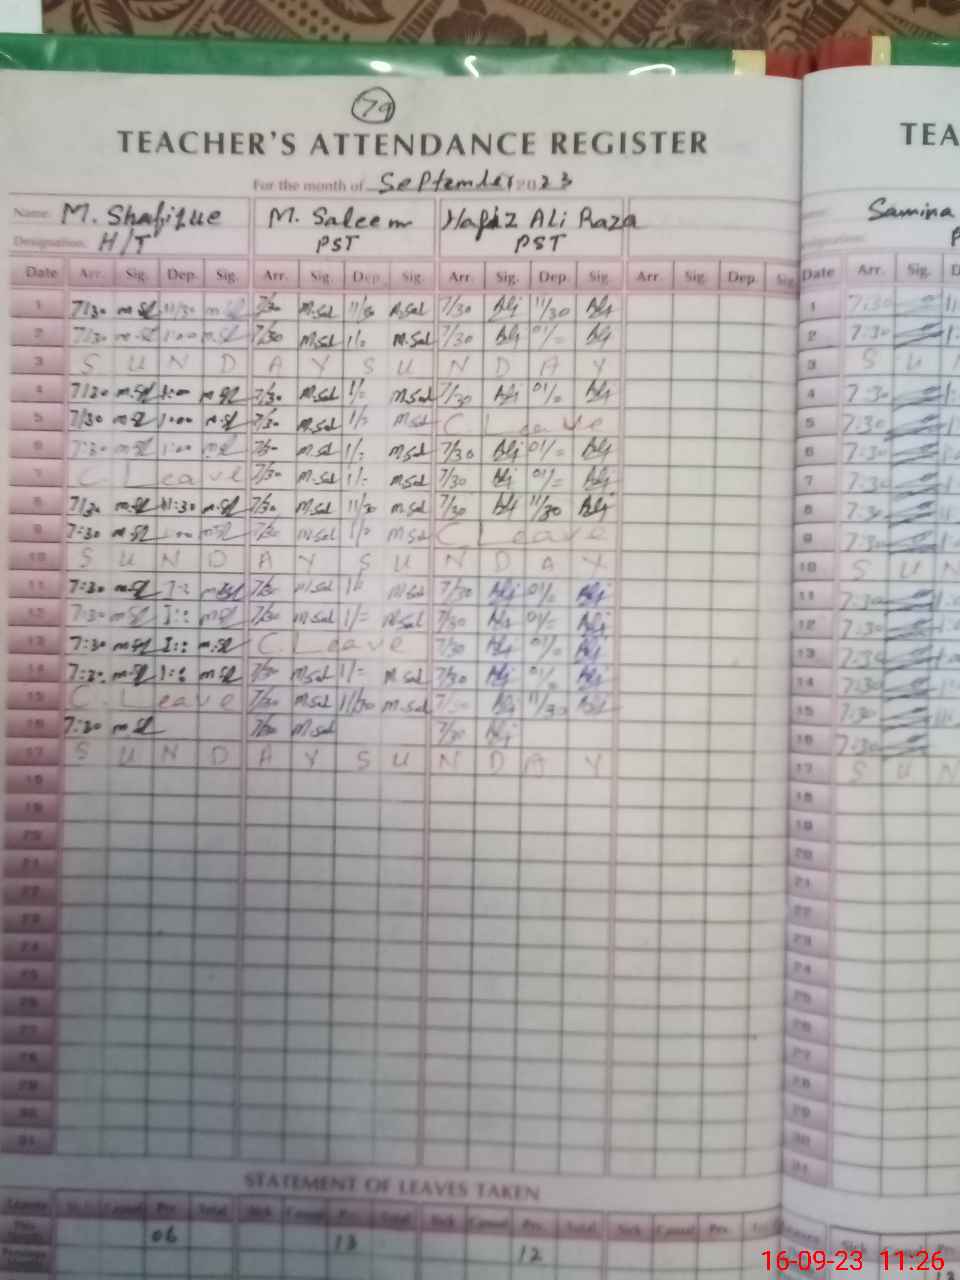 79
TEACHER'S ATTENDANCE REGISTER TEA
For the month of September 2023
Name: M. Shafique M. Saleem Hafiz Ali Raza Samina
Designation: H/T PST PST P
Date Arr. Sig. Dep. Sig. Arr. Sig. Dep. Sig. Arr. Sig. Dep. Sig. Arr. Sig. Dep. Sig. Date Arr. Sig. D
1 7/30 11/30 7/30 M.Sal 11/30 M.Sal 7/30 Ali 11/30 Ali 1 7:30
2 7/30 1:00 7/30 M.Sal 1/= M.Sal 7/30 Ali 01/= Ali 2 7:30
3 S U N D A Y S U N D A Y 3 S U
4 7/30 1:00 7/30 M.Sal 1/= M.Sal 7/30 Ali 01/= Ali 4 7:30
5 7/30 1:00 7/30 M.Sal 1/= M.Sal C. Leave 5 7:30
6 7:30 1:00 7/30 M.Sal 1/= M.Sal 7/30 Ali 01/= Ali 6 7:30
7 C. Leave 7/30 M.Sal 1/= M.Sal 7/30 Ali 01/= Ali 7 7:30
8 7/30 11:30 7/30 M.Sal 11/30 M.Sal 7/30 Ali 11/30 Ali 8 7:30
9 7:30 1:00 7/30 M.Sal 1/= M.Sal C Leave 9 7:30
10 S U N D A Y S U N D A Y 10 S U N
11 7:30 7/30 M.Sal 1/= M.Sal 7/30 Ali 01/= Ali 11 7:30
12 7:30 7/30 M.Sal 1/= M.Sal 7/30 Ali 01/= Ali 12 7:30
13 7:30 C. Leave 7/30 Ali 01/= Ali 13 7:30
14 7:30 7/30 M.Sal 1/= M.Sal 7/30 Ali 01/= Ali 14 7:30
15 C. Leave 7/30 M.Sal 11/30 M.Sal 7/30 Ali 11/30 Ali 15 7:30
16 7:30 7/30 M.Sal 7/30 Ali 16 7:30
17 S U N D A Y S U N D A Y 17 S U N
18 18
19 19
20 20
21 21
22 22
23 23
24 24
25 25
26 26
27 27
28 28
29 29
30 30
31 31
STATEMENT OF LEAVES TAKEN
Leaves Sick Casual Prv. Total Sick Casual Prv. Total Sick Casual Prv. Total Sick Casual Prv.
This Month 06 13 12
Previous
16-09-23 11:26